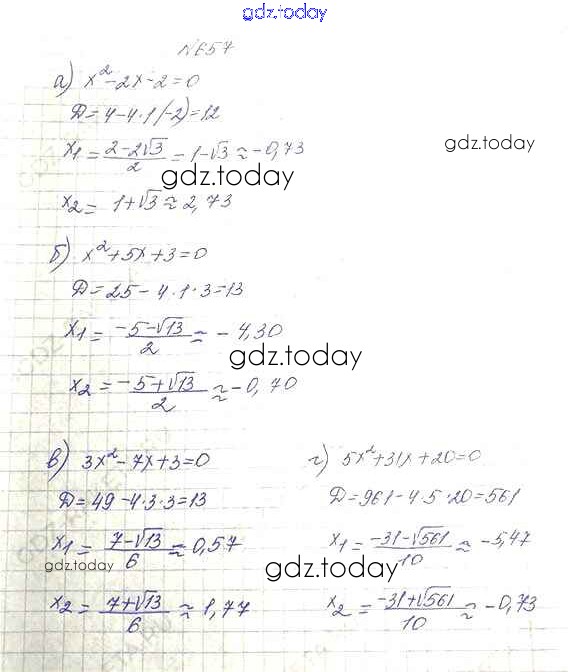 gdz.today
№657
а) x²-2x-2=0
Д=4-4·1(-2)=12
x₁=(2-2√3)/2=1-√3≈-0,73
gdz.today
gdz.today
x₂=1+√3≈2,73
б) x²+5x+3=0
Д=25-4·1·3=13
x₁=(-5-√13)/2≈-4,30
gdz.today
x₂=(-5+√13)/2≈-0,70
в) 3x²-7x+3=0
Д=49-4·3·3=13
x₁=(7-√13)/6≈0,57
gdz.today
x₂=(7+√13)/6≈1,77
г) 5x²+31x+20=0
Д=961-4·5·20=561
x₁=(-31-√561)/10≈-5,47
gdz.today
x₂=(-31+√561)/10≈-0,73